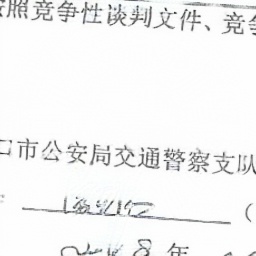 按照竞争性谈判文件、竞争
口市公安局交通警察支队
（
2018年